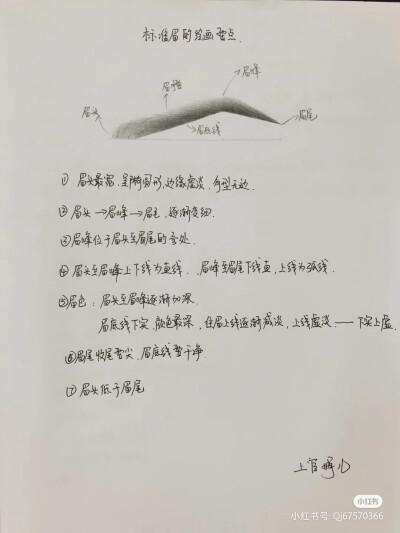 标准眉的绘画要点.
眉峰
眉腰
眉头
眉尾
眉底线
① 眉头最宽, 呈椭圆形, 边缘虚淡, 有型无边.
② 眉头→眉峰→眉尾, 逐渐变细.
③ 眉峰位于眉头至眉尾的 处.
④ 眉头至眉峰上下线为直线. 眉峰至眉尾下线直, 上线为弧线.
⑤ 眉色: 眉头至眉峰逐渐加深.
眉底线下实, 颜色最深, 往眉上线逐渐减淡, 上线虚淡——下实上虚.
⑥ 眉尾收尾要尖, 眉底线要干净.
⑦ 眉头低于眉尾
上官
小红书
小红书号: Qj67570366